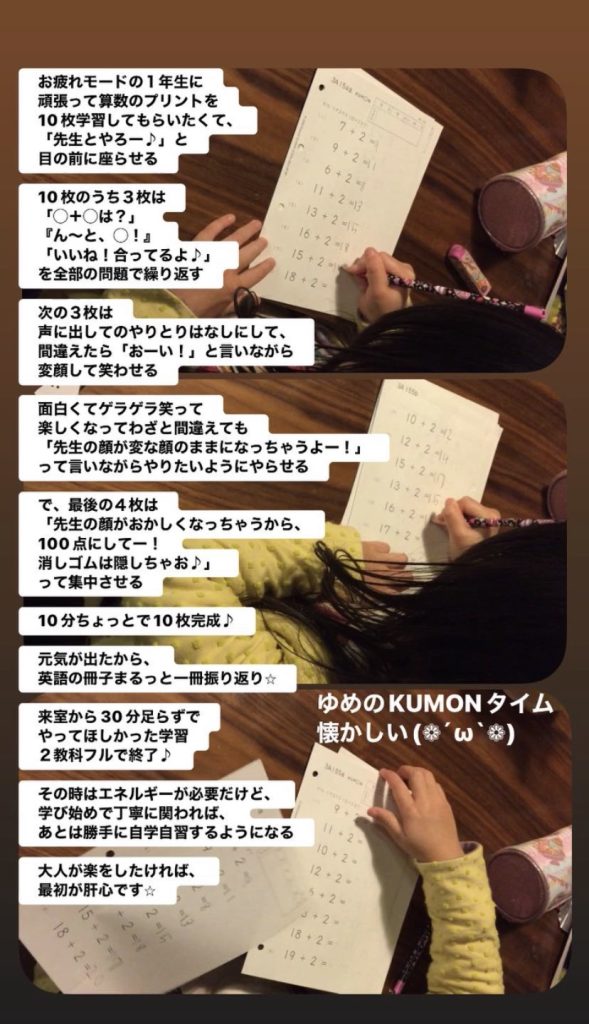 お疲れモードの1年生に
頑張って算数のプリントを
10枚学習してもらいたくて、
「先生とやろー♪」と
目の前に座らせる
10枚のうち3枚は
「◯+◯は?」
『ん〜と、◯!』
「いいね!合ってるよ♪」
を全部の問題で繰り返す
次の3枚は
声に出してのやりとりはなしにして、
間違えたら「おーい!」と言いながら
変顔して笑わせる
面白くてゲラゲラ笑って
楽しくなってわざと間違えても
「先生の顔が変な顔のままになっちゃうよー!」
って言いながらやりたいようにやらせる
で、最後の4枚は
「先生の顔がおかしくなっちゃうから、
100点にしてー!
消しゴムは隠しちゃお♪」
って集中させる
10分ちょっとで10枚完成♪
元気が出たから、
英語の冊子まるっと一冊振り返り☆
来室から30分足らずで
やってほしかった学習
2教科フルで終了♪
その時はエネルギーが必要だけど、
学び始めで丁寧に関われば、
あとは勝手に自学自習するようになる
大人が楽をしたければ、
最初が肝心です☆
ゆめのKUMONタイム
懐かしい(❁´ω`❁)
3A156a KUMON
7+2=
9+2=11
6+2=
11+2=13
13+2=15
16+2=18
15+2=
18+2=
3A155b
10+2=12
12+2=14
15+2=17
13+2=15
16+2=
17+2=
3A155a KUMON
9+2=
11+2=
10+2=
12+2=
18+2=
19+2=
15+2=
18+2=